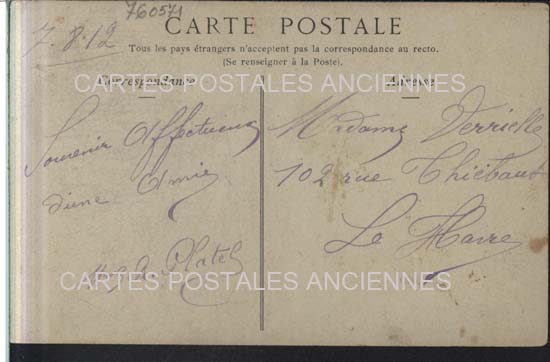 760571
7-8-12
CARTE POSTALE
Tous les pays étrangers n'acceptent pas la correspondance au recto.
(Se renseigner à la Poste).
Correspondance
Adresse
CARTES POSTALES ANCIENNES
Souvenir Affectueux
d'une Amie
Platel
Madame Verrielle
102 rue Thiébaut
Le Havre
CARTES POSTALES ANCIENNES
CARTES POSTALES ANCIENNES